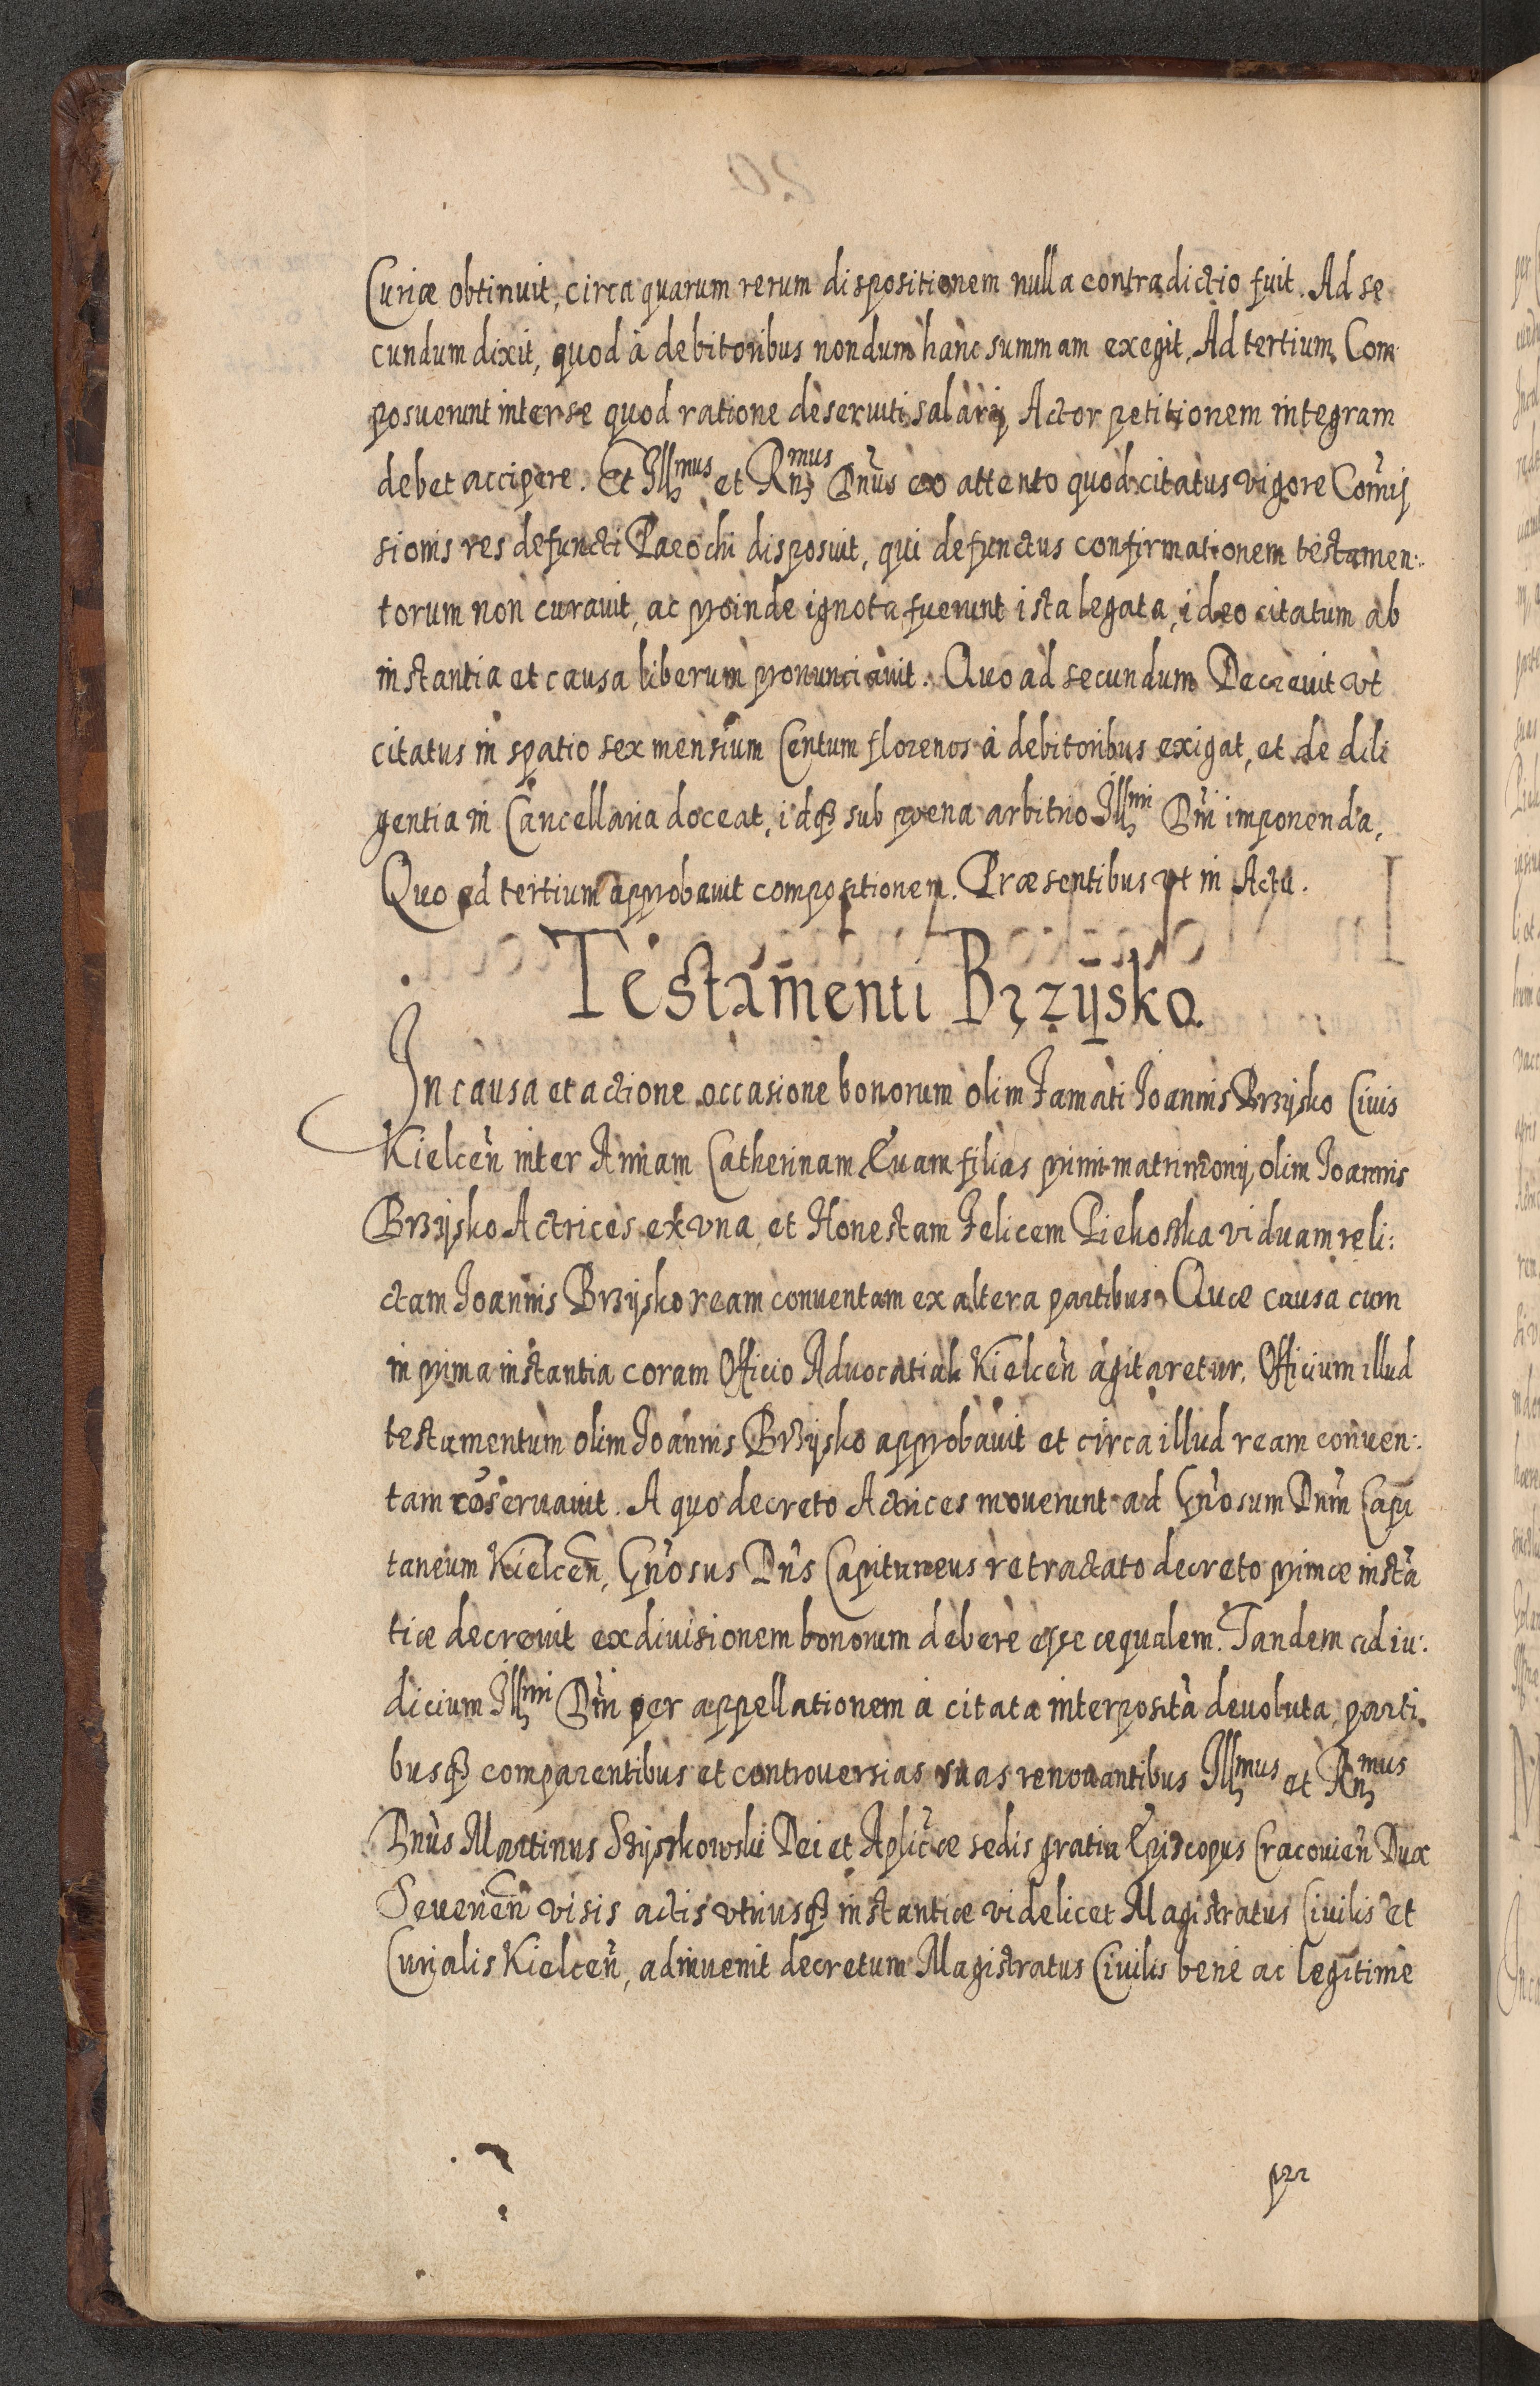 Curiæ obtinuit, circa quarum rerum dispositionem nulla contradictio fuit. Ad se
cundum dixit, quod à debitoribus nondum hanc summam exegit, Ad tertium Com
posuerunt inter se quod ratione deseruiti salarij Actor petitionem integram
debet accipere. Et Illmus et Rndmus Dnus ex attento quod citatus vigore Comis
sionis res defuncti Parochi disposuit, qui defunctus confirmationem testamen:
torum non curauit, ac proinde ignota fuerunt ista legata, ideo citatum ab
instantia et causa liberum pronunciauit. Quo ad secundum Decreuit vt
citatus in spatio sex mensium Centum florenos à debitoribus exigat, et de dili
gentia in Cancellaria doceat, idq3 sub pœna arbitrio Illmi Dni imponenda,
Quo ad tertium approbauit compositionem. Præsentibus vt in Actu.
Testamenti Brzysko
In causa et actione occasione bonorum olim Famati Joannis Brzysko Ciuis
Kielcen̄ inter Annam Catherinam Euam filias primi matrimonij olim Joannis
Brzysko Actrices ex vna et Honestam Felicem Piekoska viduam reli:
ctam Joannis Brzysko ream conuentam ex altera partibus. Quæ causa cum
in prima instantia coram Officio Aduocatiali Kielcen̄ agitaretur. Officium illud
testamentum olim Joannis Brzysko approbauit et circa illud ream conuen:
tam cōseruauit. A quo decreto Actrices mouerunt ad Gn̄osum Dnm̄ Capi
taneum Kielcen̄, Gn̄osus Dn̄s Capitaneus retractato decreto primæ instā
tiæ decreuit exdiuisionem bonorum debere esse æqualem. Tandem ad iu:
dicium Illmi Dni per appellationem à citata interposità deuoluta, parti
busq3 comparentibus et controuersias suas renouantibus Illmus et Rndmus
Dnus Martinus Szyszkowski Dei et Aplicæ sedis gratia Episcopus Cracouien̄ Dux
Seuerien̄ visis actis vtriusq3 instantiæ videlicet Magistratus Ciuilis et
Curialis Kielcen̄, adinuenit decretum Magistratus Ciuilis benè ac legitimè